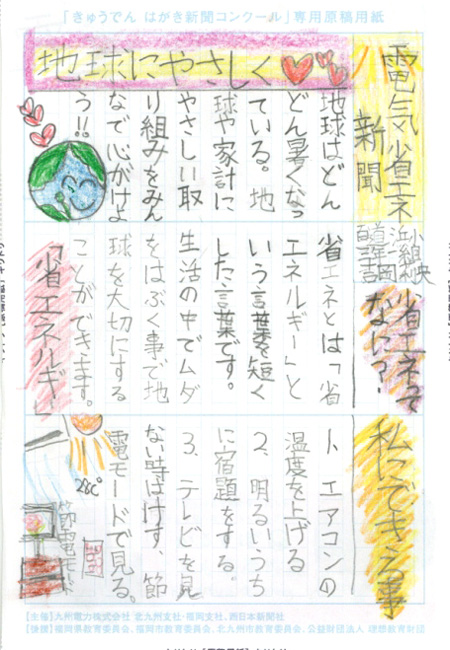 「きゅうでん はがき新聞コンクール」専用原稿用紙
電気省エネ
新聞
百道浜小
地球にやさしく
地球はどん
どん暑くなっ
ている。地
球や家計に
やさしい取
り組みをみん
なで心がけよ
う!!
省エネって
なに?
省エネとは「省
エネルギー」と
いう言葉を短く
した言葉です。
生活の中でムダ
をはぶく事で地
球を大切にする
ことができます。
「省エネルギー」
私にできる事
1、エアコンの
温度を上げる
2、明るいうち
に宿題をする。
3、テレビを見
ない時はけす、節
電モードで見る。
28℃
節電モード
【主催】九州電力株式会社 北九州支社・福岡支社、西日本新聞社
【後援】福岡県教育委員会、福岡市教育委員会、北九州市教育委員会、公益財団法人 理想教育財団